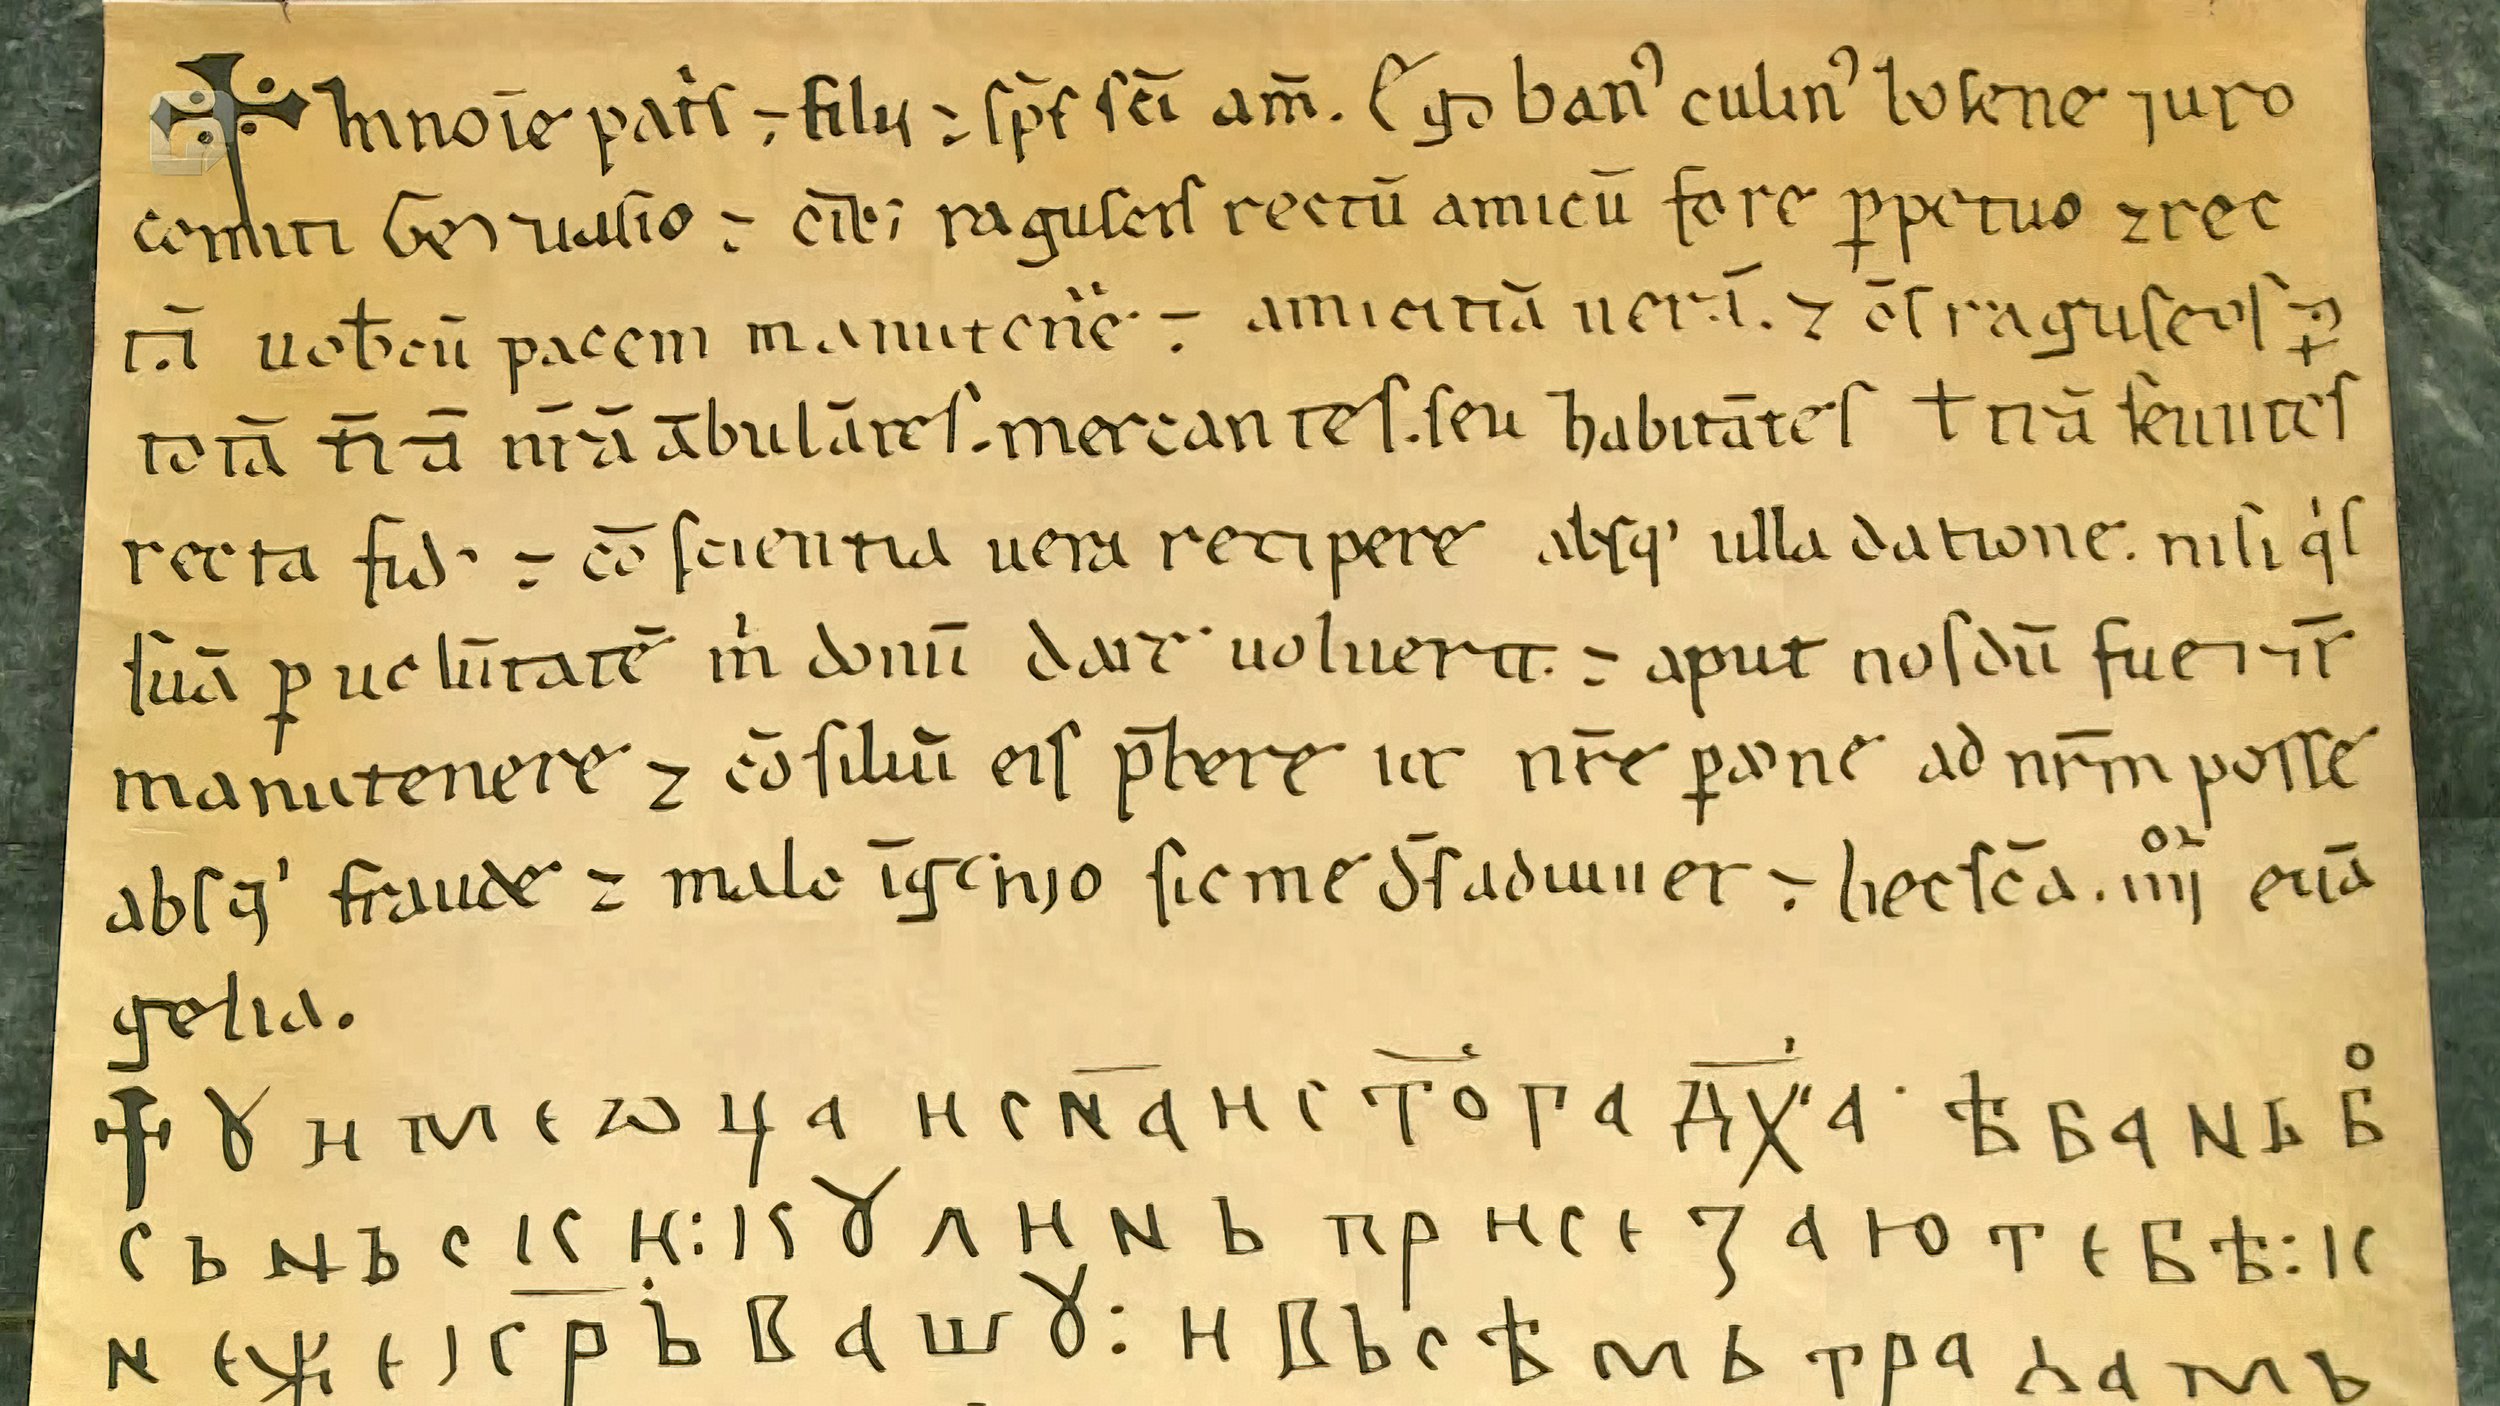 ✝ In noīe pat̓s ⁊ filij ⁊ sp̄s sc̄i am̄. Ego banꝰ culinꝰ bosene juro
comiti Geruasio ⁊ raguseis rectū amicū fore ꝑpetuo ⁊ rec
tā uob̄cū pacem manutenē ⁊ amicitiā uerā. ⁊ ōs raguseos ꝑ
totā t̄rā nr̄ā ābulātes. mercantes. seu habitātes t̄rā seruiētes
recta fid ⁊ cōscientia uera recipere absq' ulla datione. nisi q̓s
suā ꝑ uolūtatē m̓ donū dare uoluerit. ⁊ aput nos dū fuerīt
manutenere ⁊ cōsiliū eis p̄bere ut nr̄e ꝑsone ad nr̄m posse
absq' fraude ⁊ malo īgenio sic me d̄s adiuuet ⁊ hec sc̄a. iiij euā
gelia.
✝ Ꙋ имє ѡца и сн҃а и ст҃ога дх҃а· ѣ банъ бо
сьнъски: кꙋлинь присєзаю тєбѣ: к
нєжє кр҃ьвашꙋ: и вьсѣмь градамь